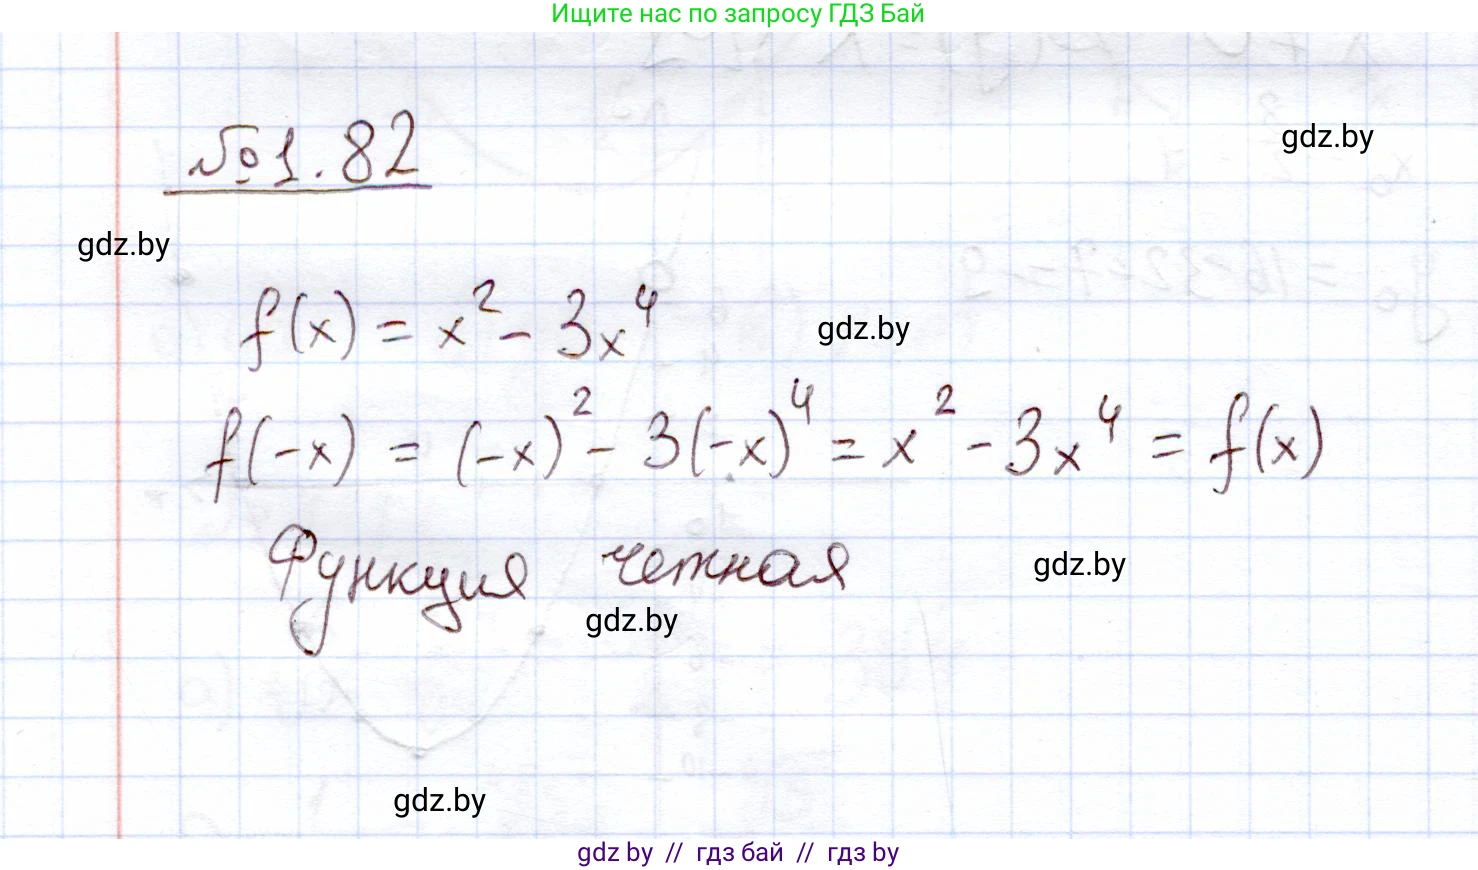 Ищите нас по запросу ГДЗ Бай
№1.82
gdz.by
gdz.by
f(x) = x² - 3x⁴
gdz.by
f(-x) = (-x)² - 3(-x)⁴ = x² - 3x⁴ = f(x)
Функция четная
gdz.by
gdz.by
gdz.by
gdz by // гдз бай // гдз by